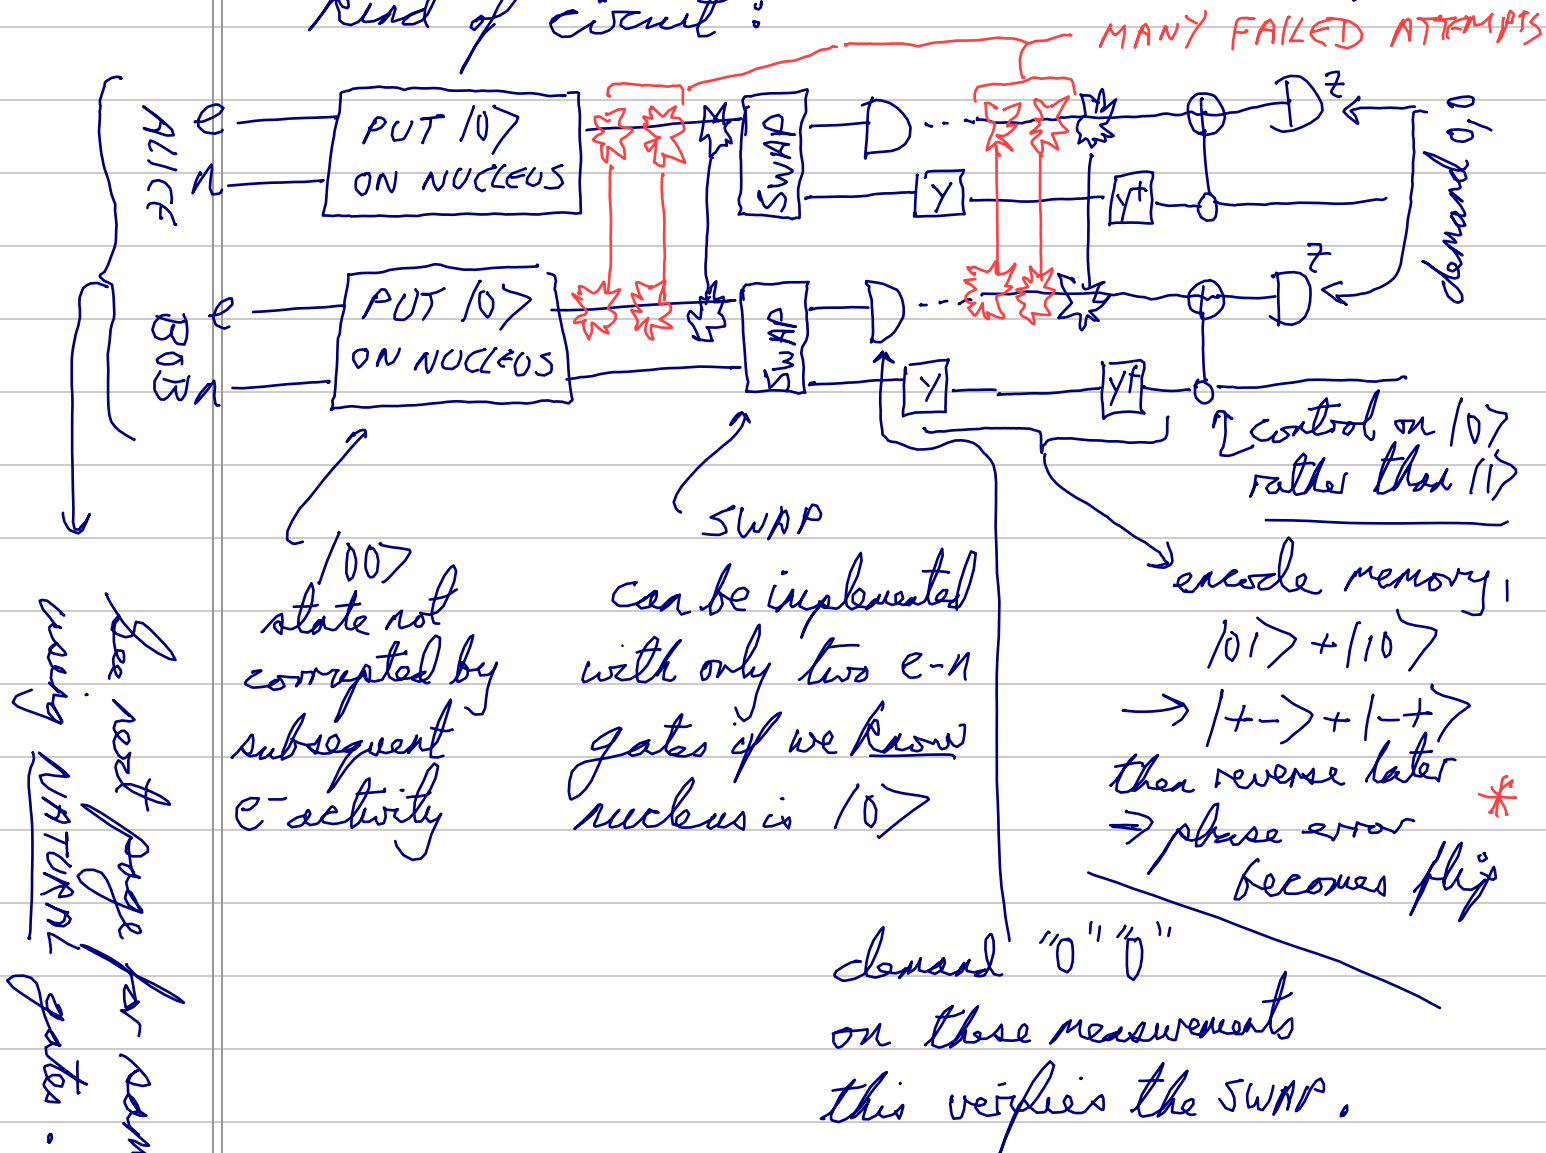 kind of circuit:
MANY FAILED ATTEMPTS
ALICE
e
n
PUT |0>
ON NUCLEUS
SWAP
Y
Y†
Z
demand 0,0
BOB
e
n
PUT |0>
ON NUCLEUS
SWAP
Y
Y†
Z
control on |0>
rather than |1>
|00>
state not
corrupted by
subsequent
e- activity
SWAP
can be implemented
with only two e-n
gates if we know
nucleus is |0>
encode memory,
|01> + |10>
→ |+-> + |-+>
then reverse later
⇒ phase error
becomes flip
*
demand "0" "0"
on these measurements
this verifies the SWAP.
See next page for
using NATURAL gates.